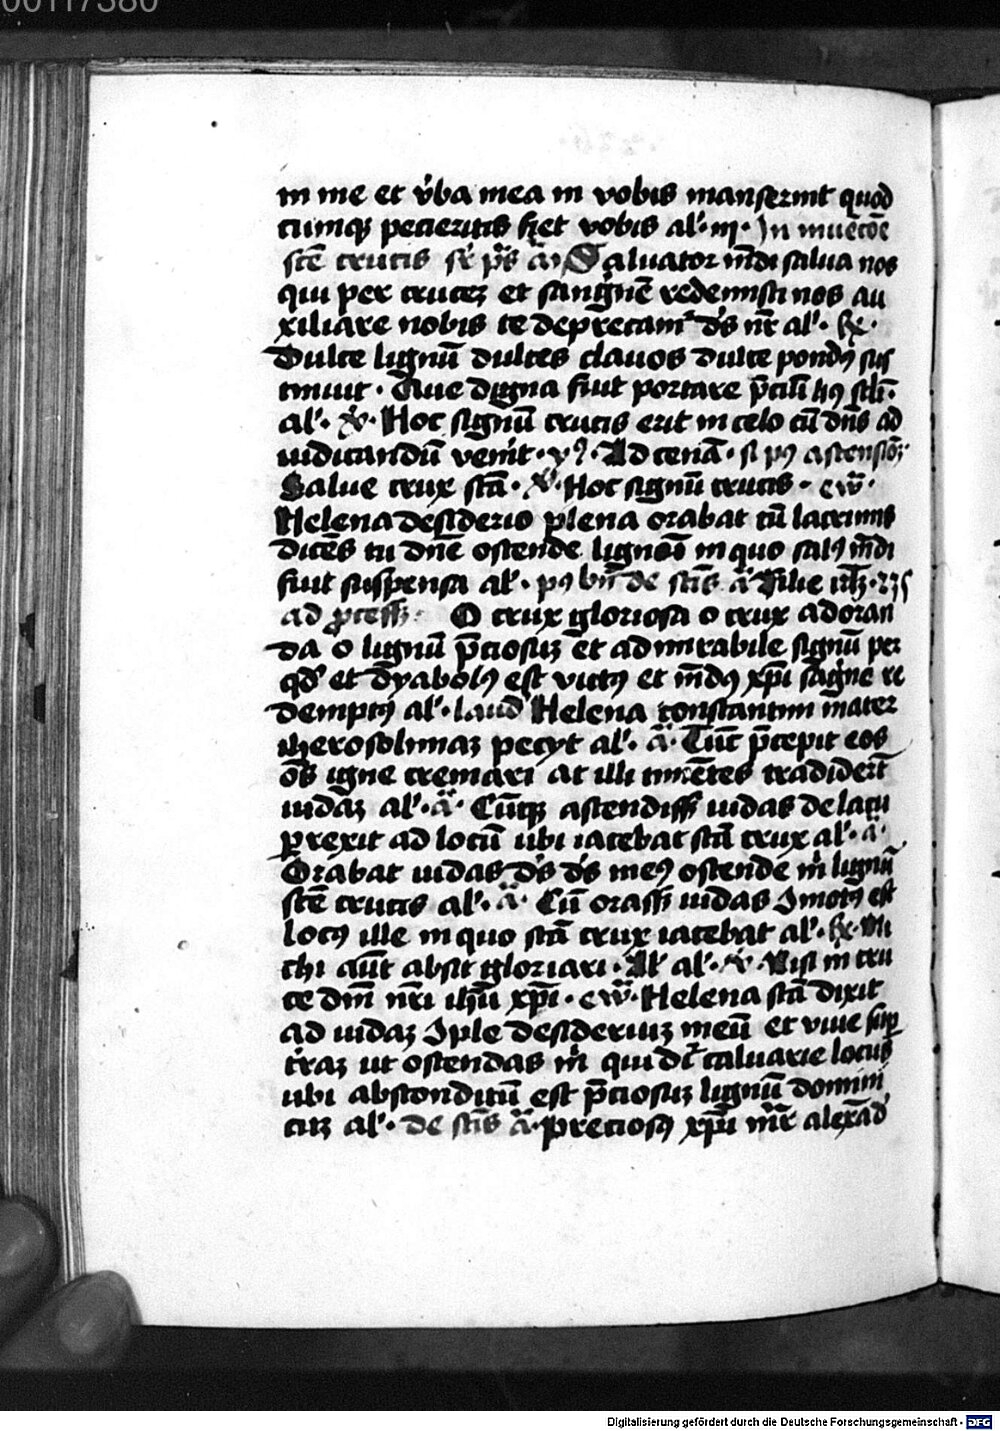 00117380
in me et v̾ba mea in vobis manserint quod
cumqꝫ pecieritis fiet vobis al̾ · iij · In inuēcōe
scē crucis sr̄ ps̄ añ Saluator mūdi salua nos
qui per crucēꝫ et sangꝰnē redemisti nos au
xiliare nobis te deprecam̾ dꝰs nr̄ al̾ · R̸ ·
Dulce lignū dulces clauos dulce pondꝰ sus
tinuit · Que digna fuit portare p̄ciū hꝰ scl̄i ·
al̾ · v̾ · Hoc signū crucis erit in celo cū dn̄s ad
iudicandū venīt · Ad cenā · si pꝰ ascensioꝫ
Salue crux scā · v̾ · Hoc signū crucis · ew̄ ·
Helena desiderio plena orabat cū lacrimis
dicēs tu dn̄e ostende lignū in quo salꝰ mūdi
fuit suspensa al̾ · pꝰ bn̄ de scīs a̾ Filie
ad p̱cess̄ · O crux gloriosa o crux adoran
da o lignū p̄ciosuꝫ et admirabile signū per
qd̾ et dyabolꝰ est victꝰ et mūdꝰ xp̄i sāgne re
demptꝰ al̾ · laud̾ Helena constantini mater
iherosolimaꝫ pecyt al̾ · a̾ · Tūc p̄cepit eos
oēs igne cremari at illi timētes tradiderūt
iudaꝫ al̾ · a̾ · Cūqꝫ ascendiss̄ iudas de lacu
perrexit ad locū ubi iacebat scā crux al̾ · a̾ ·
Orabat iudas dꝰs dꝰs meꝰ ostende m̾ lignū
scē crucis al̾ · a̾ · Cū orass̄ iudas Ꝯmotꝰ est
locꝰ ille in quo scā crux iacebat al̾ · R̸ · Mi
chi aūt absit gloriari · Al̾ al̾ · v̾ · Nisi in cru
ce dn̄i nr̄i ih̄u xp̄i · ew̄ · Helena scā dixit
ad iudaꝫ Ꝯple desideriuꝫ meū et viue sup̱
t̾raꝫ ut ostendas m̾ qui dr̄ caluarie locus
ubi absconditū est p̄ciosuꝫ lignū domini
cuꝫ al̾ · de scīs a̾ · preciosꝰ xp̄i mr̄ alexād
Digitalisierung gefördert durch die Deutsche Forschungsgemeinschaft - DFG